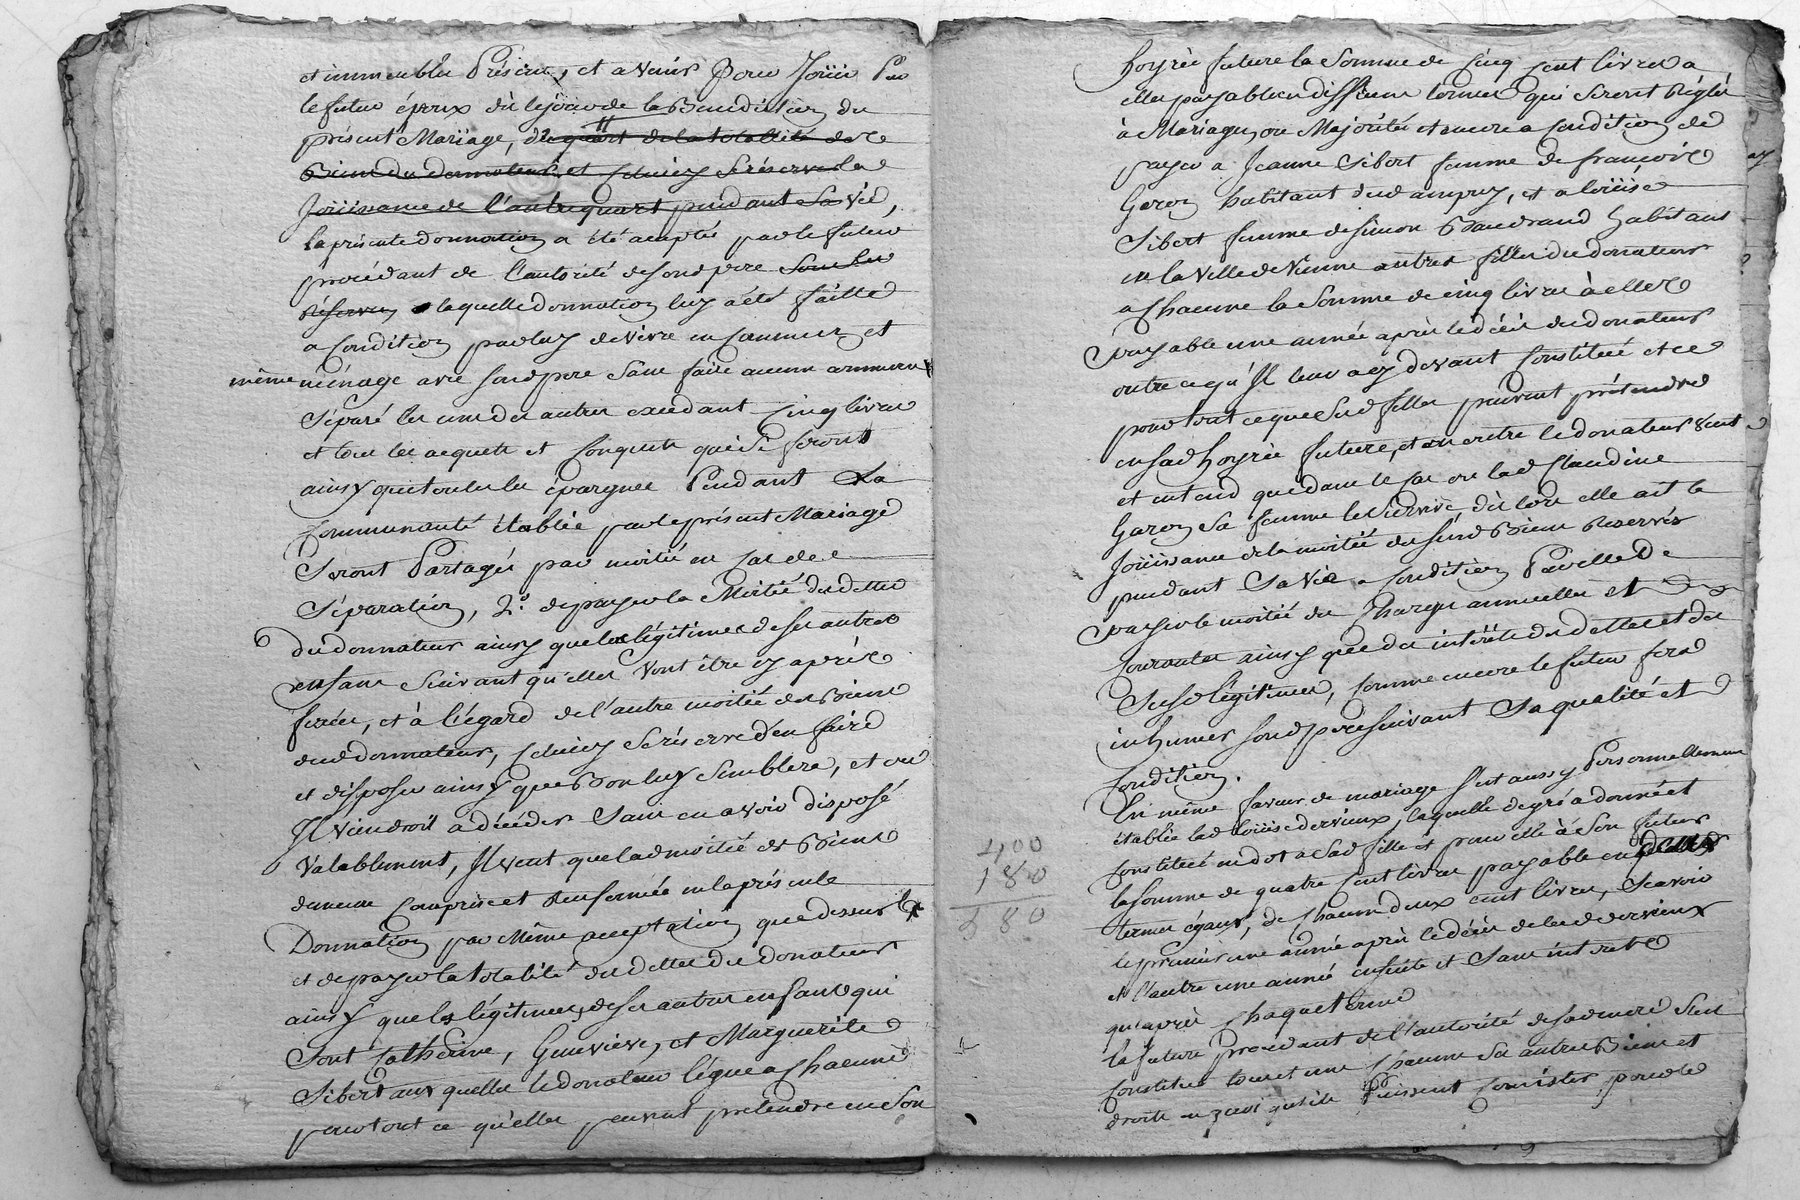 et immeubles Présents, et avenir Pour Joüir Par
le futur époux dès le jour de la Benediction du
présent Mariage, du quart de la totalité de
Biens du donnateur et celuicy se réserve la
Joüissance de l'autre quart pendant sa vie,
la présente donnation a été acceptée par le futur
procédant de l'autorité de sond pere sous les
réserves laquelle donnation luy a été faitte
a Condition par luy de vivre en Commun et
même ménage avec sond pere sans faire aucun commerce
séparé les uns des autres excedant Cinq livres
et tous les acquets et Conquets qui se feront
ainsy que toutes les épargnes Pendant La
Communauté établie par le présent Mariage
Seront Partagés par moitié en Cas de
Séparation, 2.° de payer la Moitié des dettes
du donnateur ainsy que les légitimes de ses autres
enfans suivant qu'elles vont être cy après
fixées, et à l'égard de l'autre moitié des Biens
dud donnateur, Celuicy se réserve d'en faire
et disposer ainsy que Bon luy semblera, et ou
Il viendroit a décéder sans en avoir disposé
valablement, Il veut que lad moitié de Biens
demeure Comprise et Renfermée en la présente
Donnation par Même acceptation que dessus
et de payer la totalité des dettes du donateur
ainsy que les légitimes de ses autres enfans qui
sont Catherine, Genevieve, et Marguerite
Sibert aux quelles le donateur légue a Chacune
pour tout ce qu'elles peuvent prétendre en son
hoyrie future la somme de Cinq Cent livres a
elles payable en differens termes qui seront Réglés
à Mariage, ou Majorité et encore a Condition de
payer a Jeanne Sibert femme de françois
Garon habitant dud ampuy, et a loüise
Sibert femme de simon Baudrand habitans
en la ville de vienne autres filles du donateur
a Chacune la somme de cinq livres à elles
payable une année après le décès du donateur
outre ce qu'Il leur a cy devant Constitué et ce
pour tout ce que sesd filles peuvent prétendre
en sad hoyrie future, et en outre le donateur veut
et entend que dans le Cas ou lad Claudine
Garon sa femme le survive dès lors elle ait la
Joüissance de la moitié des susd Biens Reservés
pendant sa vie a Condition Par elle De
payer la moitié des Charges annuelles et
Courantes ainsy que des intérêts des dettes et des
susd légitimes, Comme encore le futur fera
inhumer sond pere suivant sa qualité et
Condition.
En même faveur de mariage s'est aussy Personnellement
établie lad loüise dervieux, laquelle de gré a donné et
Constitué en dot a sad fille et pour elle à son futur
la somme de quatre Cent livres payable en deux
termes égaux, de Chacun deux cent livres, Scavoir
le premier une année après le décès de lad dervieux
et l'autre une année ensuite et sans intérêts
qu'après Chaque terme
la future procédant de l'autorité de sad mere s'est
Constitué tous et une Chacuns ses autres Biens et
droits en quoi qu'ils Puissent Consister, pour le
400
180
580